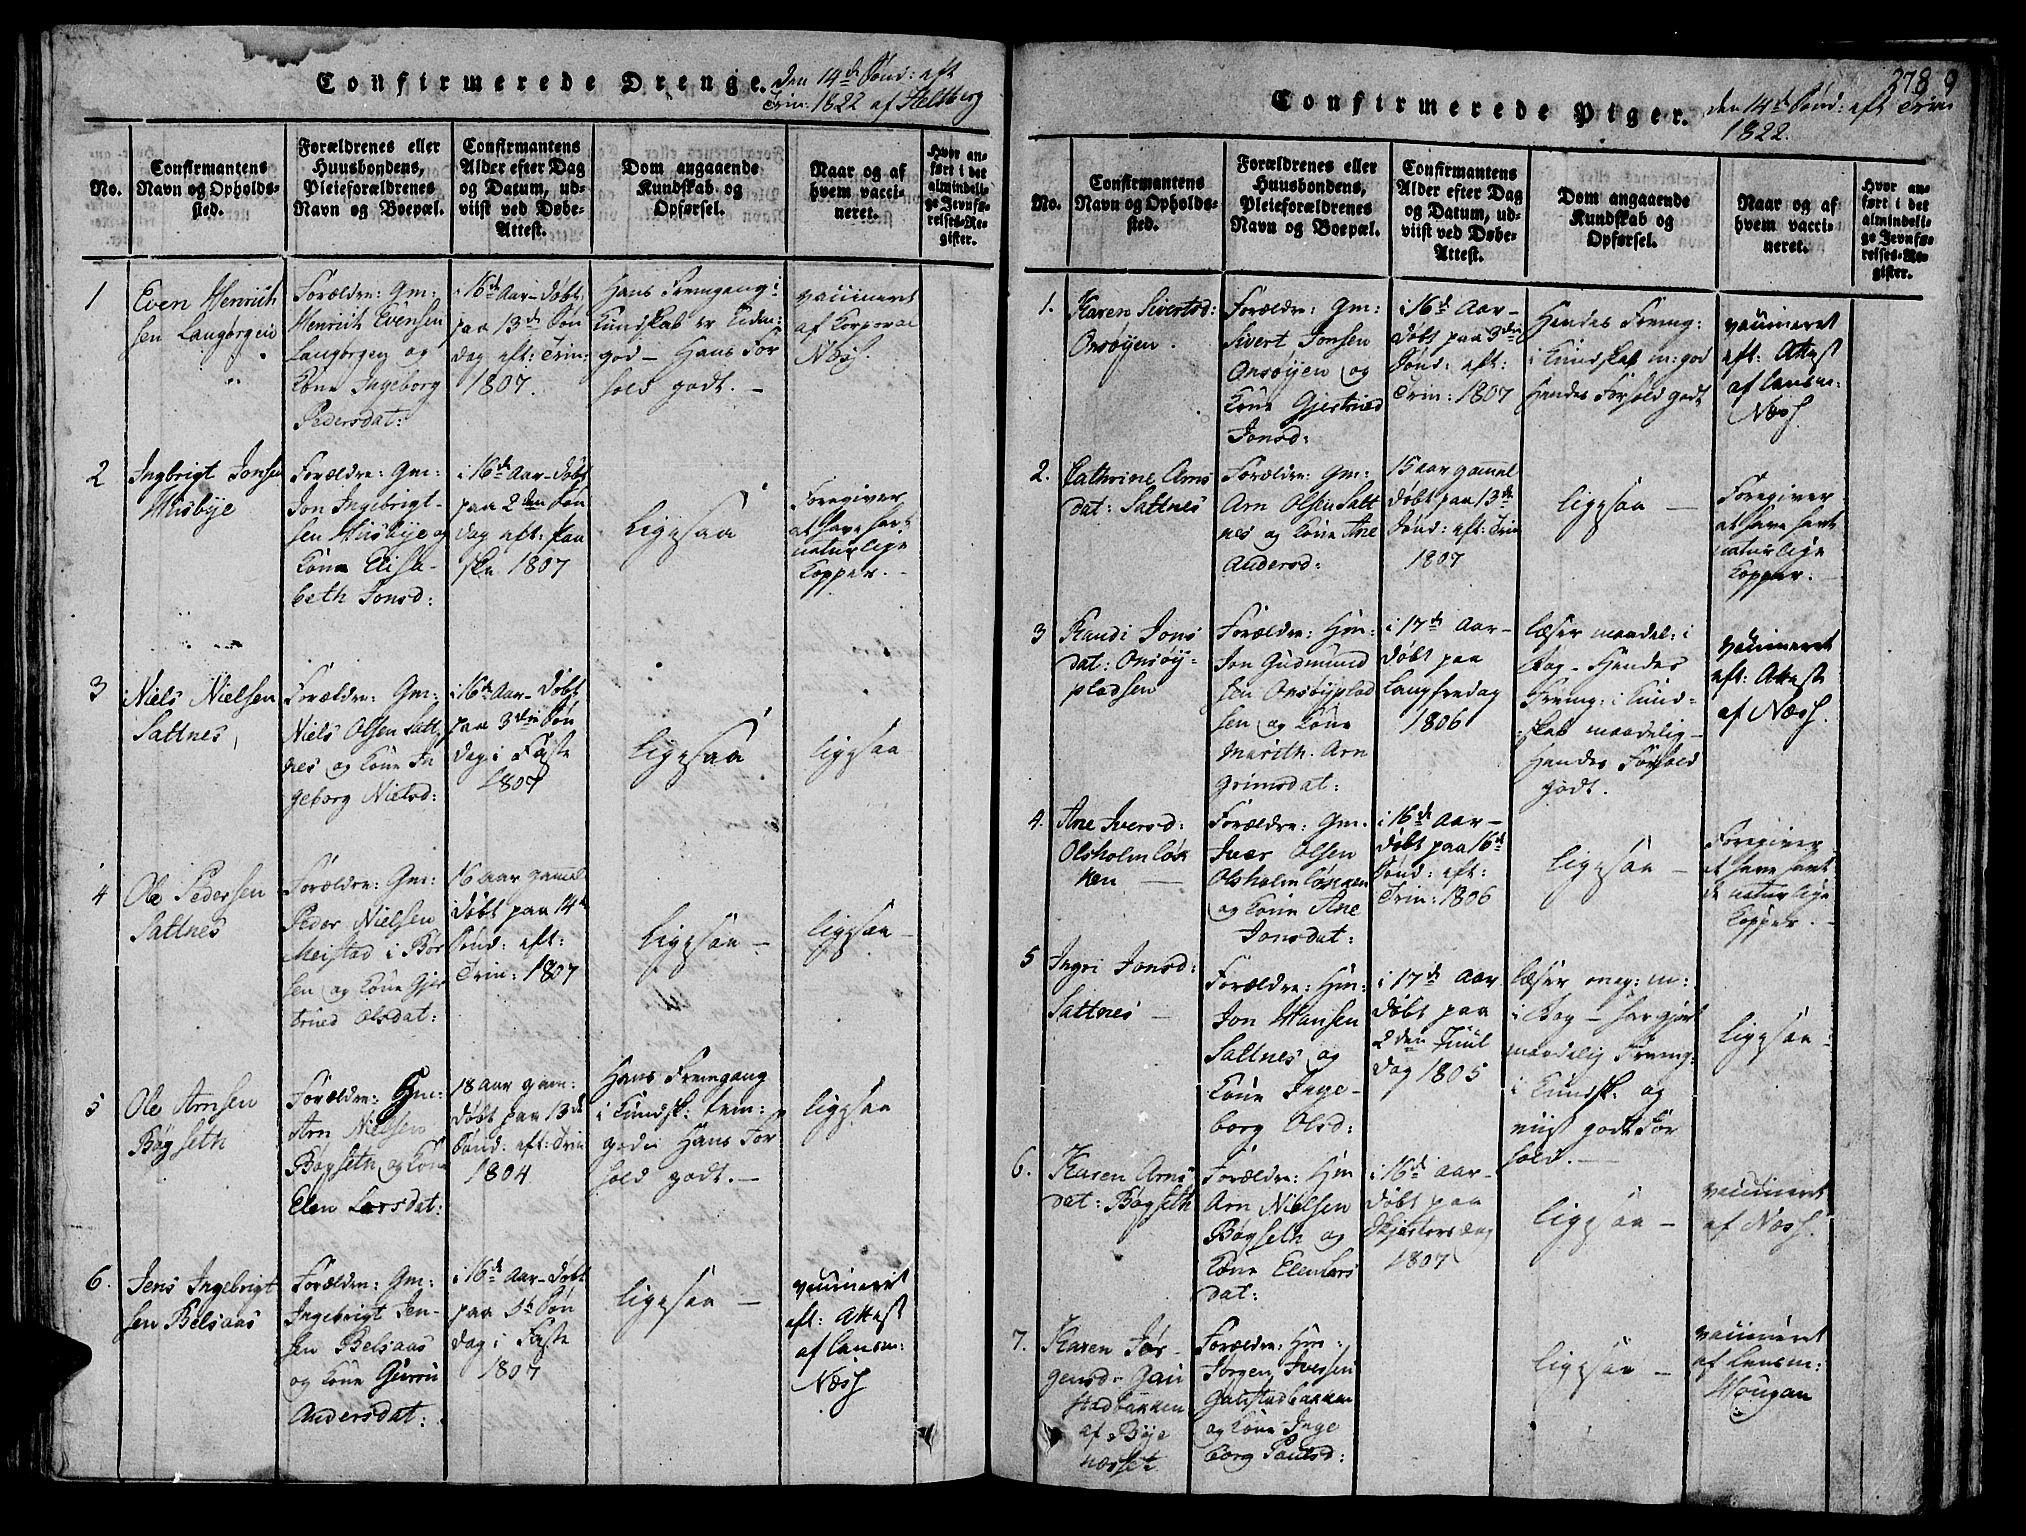 Confirmerede Drenge.
den 14de Sönd: eft
Trin: 1822 af Stelsberg
No.
Confirmantens
Navn og Opholds-
sted.
Forældrenes eller
Huusbondens,
Pleieforældrenes
Navn og Boepæl.
Confirmantens
Alder efter Dag
og Datum, ud-
viist ved Døbe-
Attest.
Dom angaaende
Kundskab og
Opførsel.
Naar og af
hvem vacci-
neret.
Hvor an-
ført i det
almindeli-
ge Jevnfø-
relses-Re-
gister.
1
Even Henrich
sen Langørgen
Forældre: Gm:
Henrich Evensen
Langørgen og
Kone Ingeborg
Pedersdat:
i 16de Aar - döbt
paa 13de Søn
dag eft: Trin:
1807.
Hans Fremgang i
Kundskab er tem:
god - Hans For
hold godt. -
vaccineret
af Korporal
Næss.
2
Ingbrigt Jonsen
Husbye
Forældre: Gm-
Jon Ingebrigt-
sen Husbye og
Kone Elisa-
beth Jonsd:
i 16de Aar - döbt
paa 2den Søn
dag eft: Paa
ske 1807
ligesaa
Foregiver
at have havt
naturlige
Kopper. -
3
Niels Nielsen
Saltnes
Forældre: Gm-
Niels Olsen Salt
nes og Kone In
geborg Nielsd:
i 16de Aar - döbt
paa 3die Søn
dag i Faste
1807
ligesaa
ligesaa
4
Ole Pedersen
Saltnes
Forældre: Gm-
Peder Nielsen
Meistad i Bør
sen og Kone Gjer
trued Olsdat:
16 aar gamel
døbt paa 14de
Sönd: eft:
Trin: 1807
ligesaa -
ligesaa -
5
Ole Arnsen
Bøgseth
Forældre: Hm-
Arn Nielsen
Bøgseth og Kone
Elen Larsdat:
18 aar gam:
døbt paa 13de
Sönd: eft: Trin
1804
Hans Fremgang
i Kundsk: tem:
god Hans For
hold godt. -
ligesaa
6.
Jens Ingebrigt
sen Belsaas
Forældre: Gm:
Ingebrigt Jen-
sen Belsaas
og Kone Gurru
Andersdat:
i 16de Aar - döbt
paa 5te Søn
dag i Faste
1807
ligesaa -
vaccineret
eft: Attest
af Lensm:
Næss
278
Confirmerede Piger.
den 14de Sönd: eft Trin
1822.
No.
Confirmantens
Navn og Opholds-
sted.
Forældrenes eller
Huusbondens,
Pleieforældrenes
Navn og Boepæl.
Confirmantens
Alder efter Dag
og Datum, ud-
viist ved Døbe-
Attest.
Dom angaaende
Kundskab og
Opførsel.
Naar og af
hvem vacci-
neret.
Hvor an-
ført i det
almindeli-
ge Jevnfø-
relses-Re-
gister.
1.
Karen Sivertsd:
Onsøyen.
Forældre: Gm:
Sivert Jonsen
Onsøyen og
Kone Gjertrued
Jonsd:
i 16de Aar -
døbt paa 3die
Sönd: eft:
Trin: 1807
Hendes Fremg:
i Kundskab m: god
Hendes Forhold godt
vaccineret
eft: Attest
af Lensm:
Næss.
2.
Cathrine Arns
dat: Saltnes
Forældre: Gm:
Arn Olsen Salt
nes og Kone Ane
Andersd:
15 aar gammel
döbt paa 13de
Sönd: eft: Trin
1807
ligesaa -
Foregiver
at have havt
naturlige
Kopper. -
3
Randi Jons
dat: Onsøy-
pladsen
Forældre: Hm:
Jon Gudmund
sen Onsøyplad
sen og Kone
Marith Arn
grimsdat:
i 17de Aar -
döbt paa
Langfredag
1806
læser maadel: i
Bog - Hendes
Fremg: i Kund-
skab maadelig -
Hendes Forhold
godt.
vaccineret
eft: Attest
af Næss.
4.
Ane Iversd:
Olsholmløk
ken -
Forældre: Gm.
Iver Olsen
Olsholmløkken
og Kone Ane
Jonsdat:
i 16de Aar -
döbt paa 16de
Sönd: eft:
Trin: 1806
ligesaa -
Foregiver
at have havt
de naturlige
Kopper. -
5
Ingri Jonsd:
Saltnes -
Forældre: Hm:
Jon Hansen
Saltnes og
Kone Inge-
borg Olsd:
i 17de Aar
döbt paa
2den Juul
dag 1805
læser meg: m:
i Bog - har gjort
maadelig Fremg:
i Kundsk: og
viist godt For
hold. -
ligesaa -
6.
Karen Arns
dat: Bøgseth
Forældre: Hm
Arn Nielsen
Bøgseth og
Kone Elen Lars
dat:
i 16de Aar -
döbt paa
Skjertorsdag
1807
ligesaa -
vaccineret
af Næss.
7.
Karen Jør-
gensd- Gau
stadbakken
af Bye
næsset
Forældre: Hm:
Jørgen Iversen
Gaustadbakken
og Kone Inge
borg Paulsd:
ligesaa -
vaccineret
af Lensm:
Hougan